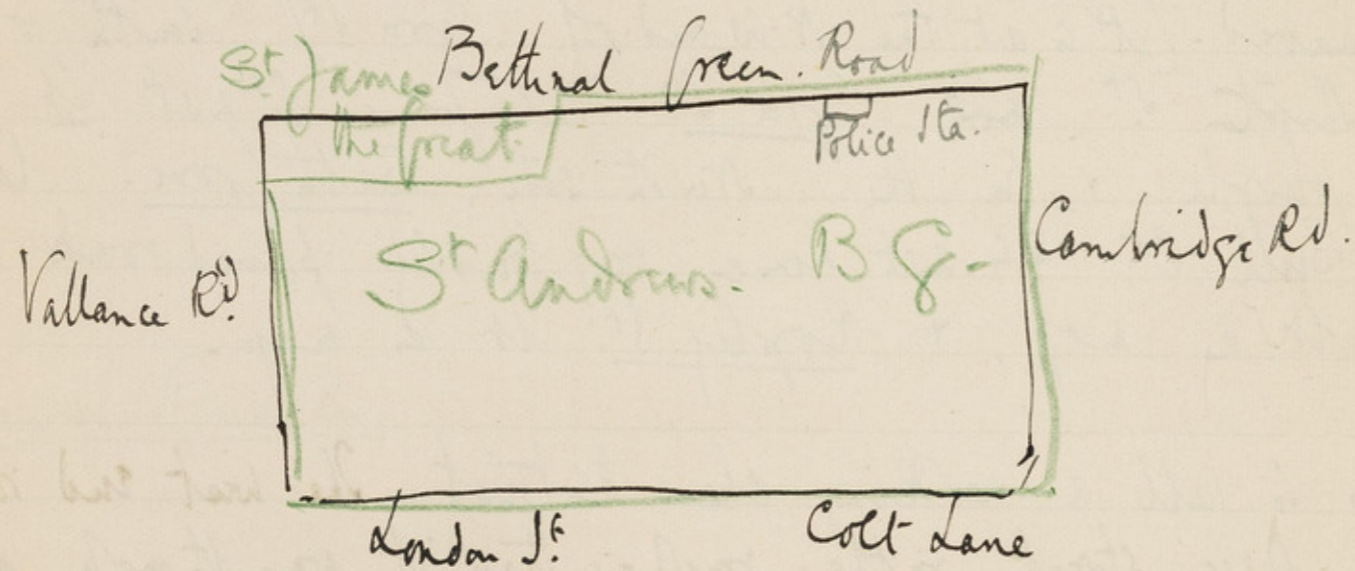 St James
the Great
Bethnal Green. Road
Police Sta.
Vallance Rd.
St Andrews. B G-
Cambridge Rd.
London St.
Colt Lane